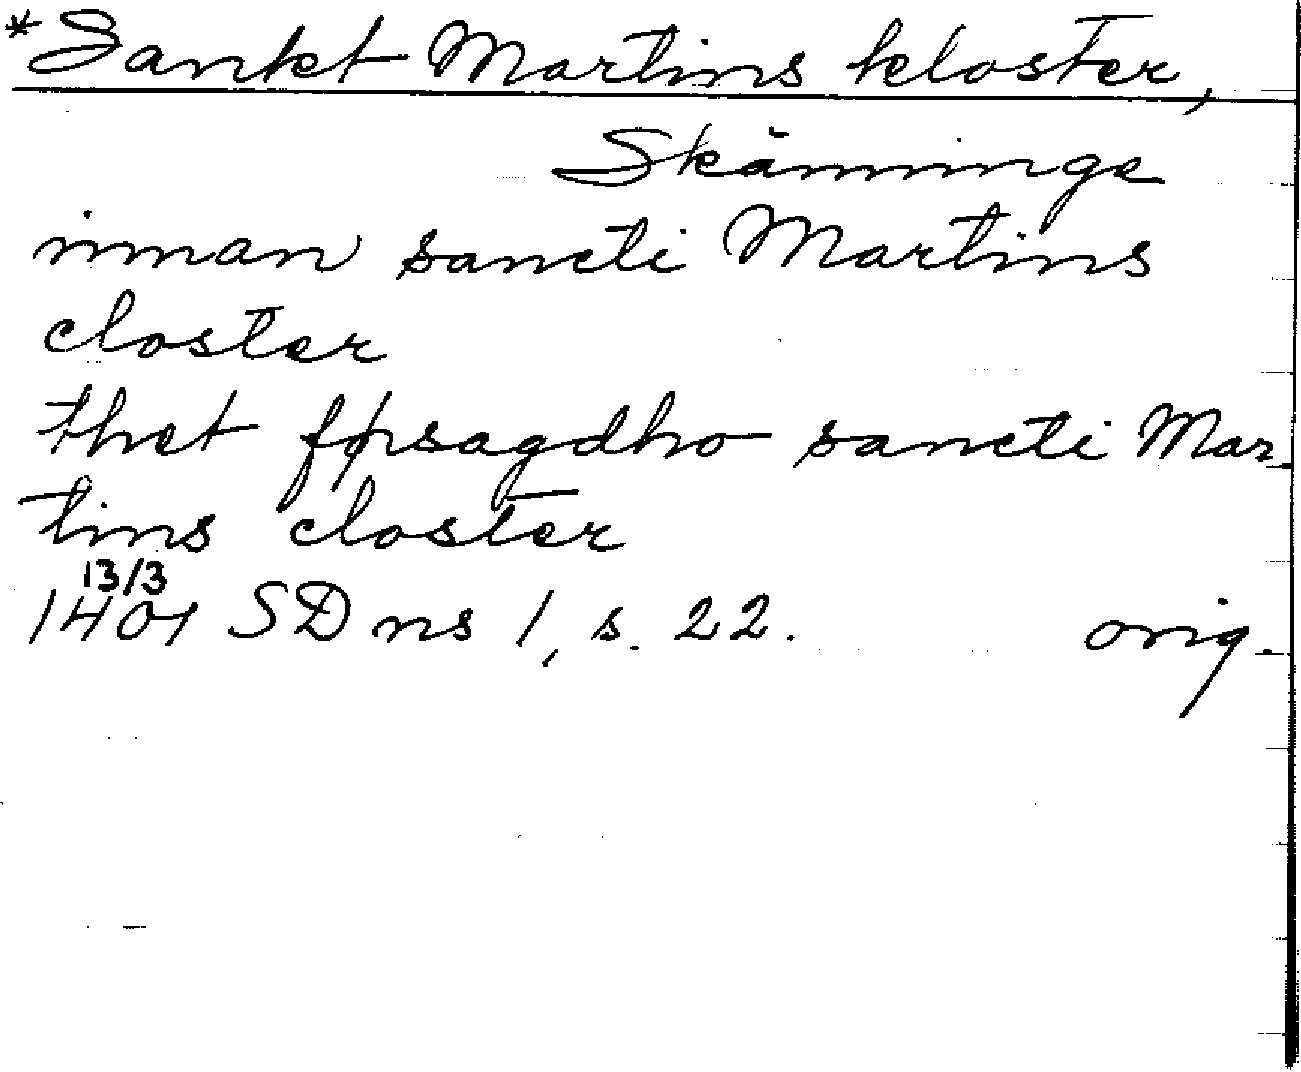 *Sankt Martins kloster,
Skänninge
innan sancti Martins
closter
thet førsagdho sancti Mar
tins closter
13/3
1401 SD ns 1, s. 22. orig.